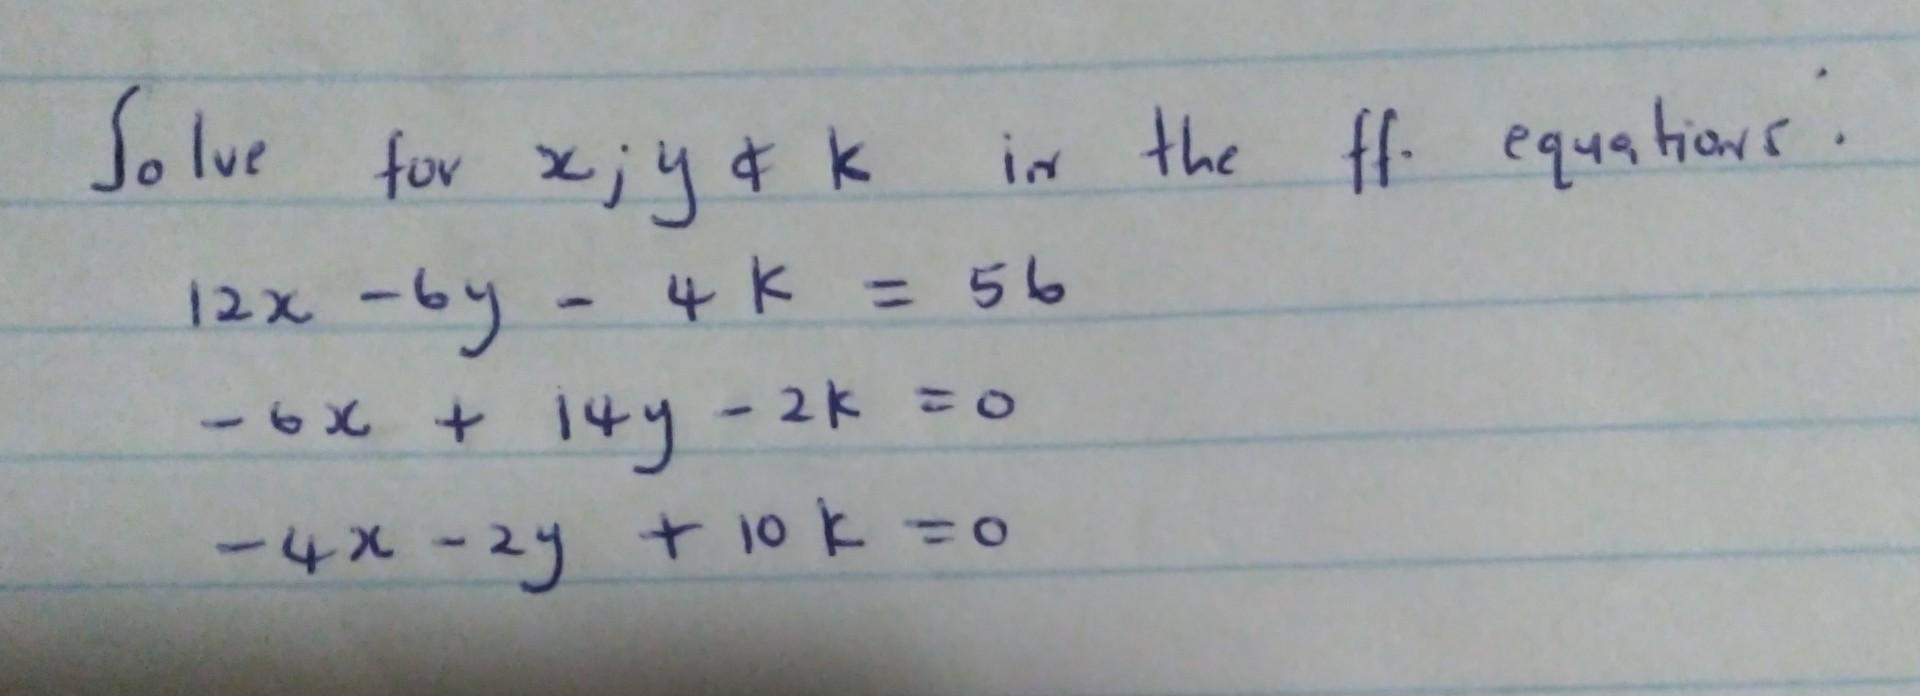 Solve for x; y & k in the ff. equations:
12x - 6y - 4k = 56
-6x + 14y - 2k = 0
-4x - 2y + 10k = 0